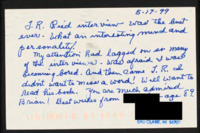 5-17-99
T.R. Reid interview - was the best
ever. What an interesting mind and
personality!
My attention had lagged on so many
of the interviews. Was afraid I was
becoming bored. And then came T.R. &
didn't want to miss a word! Will want to
read his book. You are much admired
Brian! Best wishes from age 89
EAU CLAIRE, WI 547